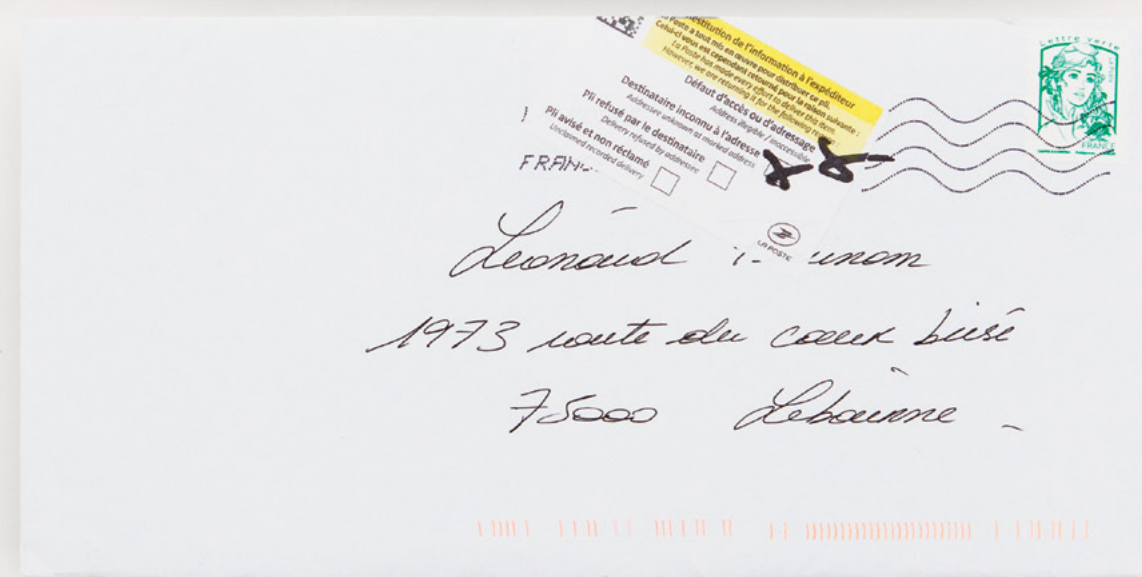 Restitution de l'information à l'expéditeur
La Poste a tout mis en œuvre pour distribuer ce pli.
Celui-ci vous est cependant retourné pour la raison suivante :
La Poste has made every effort to deliver this item.
However, we are returning it for the following reason:
Défaut d'accès ou d'adressage
Address illegible / inaccessible
Destinataire inconnu à l'adresse
Addressee unknown at marked address
Pli refusé par le destinataire
Delivery refused by addressee
Pli avisé et non réclamé
Unclaimed recorded delivery
LA POSTE
Lettre verte
FRANCE
FRAN
Léonard
1973 route du cœur brisé
75000